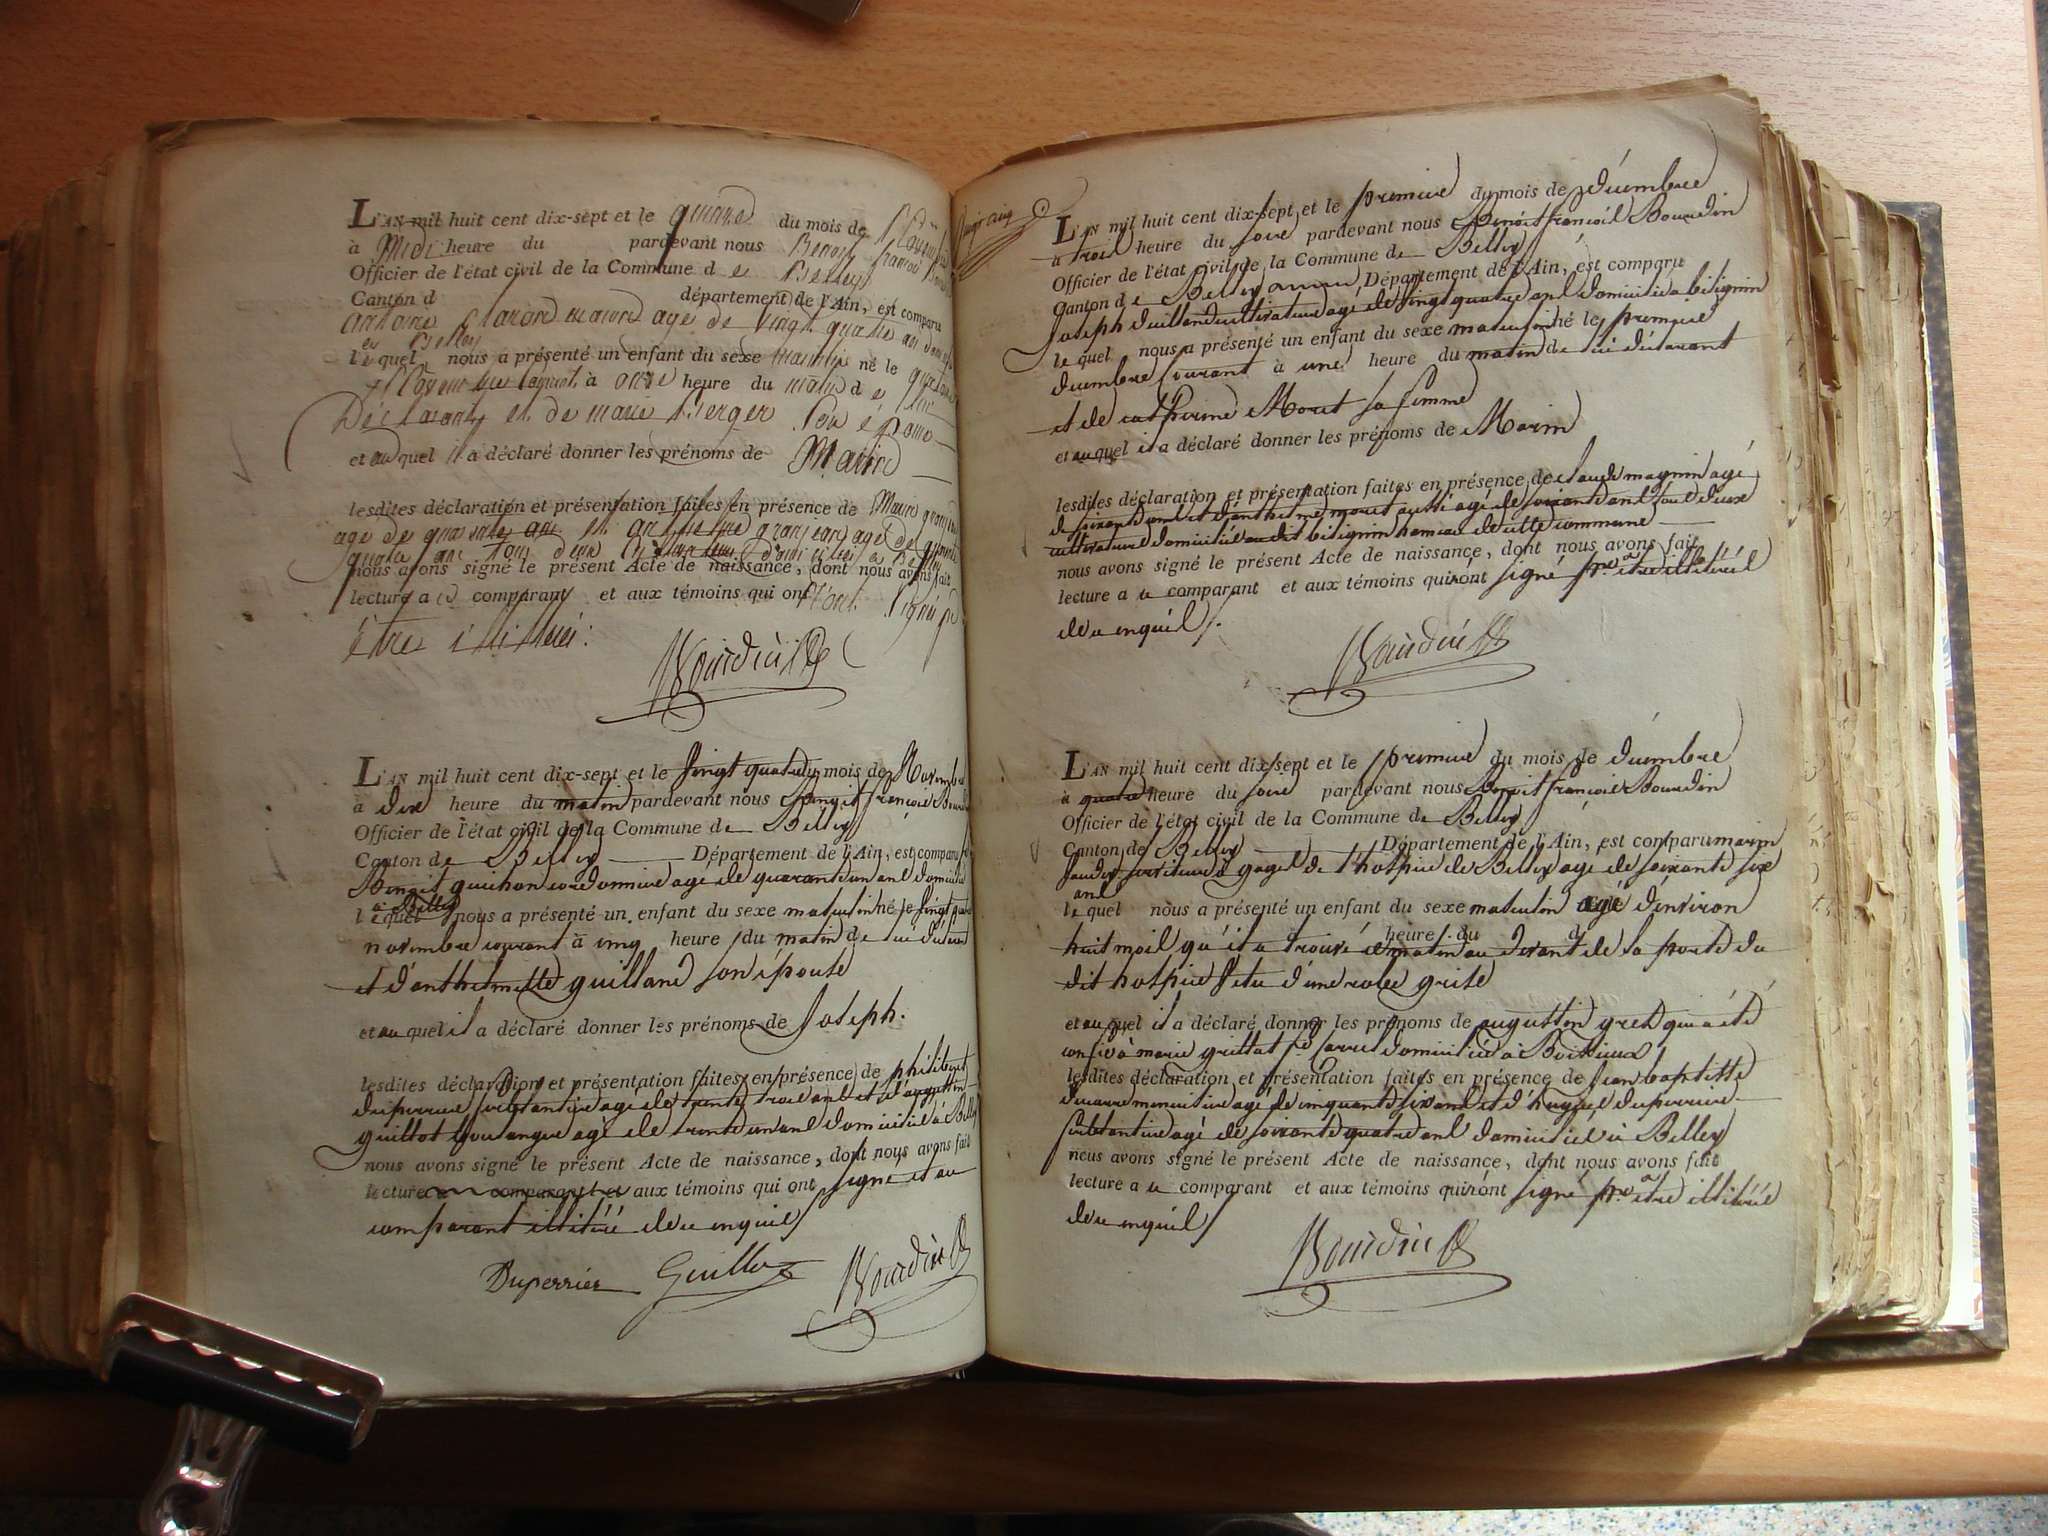 L'AN mil huit cent dix-sept et le quinze du mois de Novembre
à Midi heure du pardevant nous Benoit françois
Officier de l'état civil de la Commune de Belley
Canton d département de l'Ain, est comparu
antoine agé de vingt quatre ans
a Belley
lequel nous a présenté un enfant du sexe masculin né le
Novembre courant à onze heure du matin de lui
Déclarant et de marie Berger son épouse
et auquel il a déclaré donner les prénoms de
lesdites déclaration et présentation faites en présence de
agé de quarante ans et anthelme agé de
quatre ans tous deux domiciliés a Belley
nous avons signé le présent Acte de naissance, dont nous avons fait
lecture a ce comparant et aux témoins qui ont
être illitérés
Bourdin
L'AN mil huit cent dix-sept et le vingt quatre du mois de Novembre
à dix heure du matin pardevant nous Benoit françois Bourdin
Officier de l'état civil de la Commune de Belley
Canton de Belley Département de l'Ain, est comparu
Benoit guichon cordonnier agé de quarante un ans domicilié
à Belley
lequel nous a présenté un enfant du sexe masculin né le vingt quatre
novembre courant à cinq heure du matin de lui déclarant
et d'anthelmette guilland son épouse
et auquel il a déclaré donner les prénoms de Joseph.
lesdites déclaration et présentation faites en présence de philibert
duperrier agé de trente trois ans et d'augustin
guillot boulanger agé de trente un ans domiciliés à Belley
nous avons signé le présent Acte de naissance, dont nous avons fait
lecture a comparant et aux témoins qui ont signé et au
comparant illitéré de ce enquis
Duperrier Guillot Bourdin
L'AN mil huit cent dix-sept et le premier du mois de décembre
à trois heure du soir pardevant nous Benoit françois Bourdin
Officier de l'état civil de la Commune de Belley
Canton de Belley Département de l'Ain, est comparu
Joseph cultivateur agé de vingt quatre ans domicilié a bilignin
lequel nous a présenté un enfant du sexe masculin né le premier
décembre courant à une heure du matin de lui déclarant
et de catherine Moret sa femme
et auquel il a déclaré donner les prénoms de Marin
lesdites déclaration et présentation faites en présence de claude magnin agé
de soixante ans et d'anthelme moret aussi agé de soixante ans tous deux
cultivateurs domiciliés au dit bilignin hameau de cette commune
nous avons signé le présent Acte de naissance, dont nous avons fait
lecture a ce comparant et aux témoins qui n'ont signé pr être illitérés
de ce enquis
Bourdin
L'AN mil huit cent dix-sept et le premier du mois de décembre
à quatre heure du soir pardevant nous Benoit françois Bourdin
Officier de l'état civil de la Commune de Belley
Canton de Belley Département de l'Ain, est comparu marin
serviteur à gages de l'hospice de Belley agé de soixante six
ans
lequel nous a présenté un enfant du sexe masculin agé d'environ
heure du d
huit mois qu'il a trouvé ce matin au devant de la porte du
dit hospice vetu d'une robe grise
et auquel il a déclaré donner les prénoms de augustin gres qui a été
confié à marie grillat domiciliée à
lesdites déclaration et présentation faites en présence de Jean baptiste
agé de cinquante six ans et d'hugues duperrier
agé de soixante quatre ans domiciliés à Belley
nous avons signé le présent Acte de naissance, dont nous avons fait
lecture a ce comparant et aux témoins qui n'ont signé pr être illitérés
de ce enquis
Bourdin